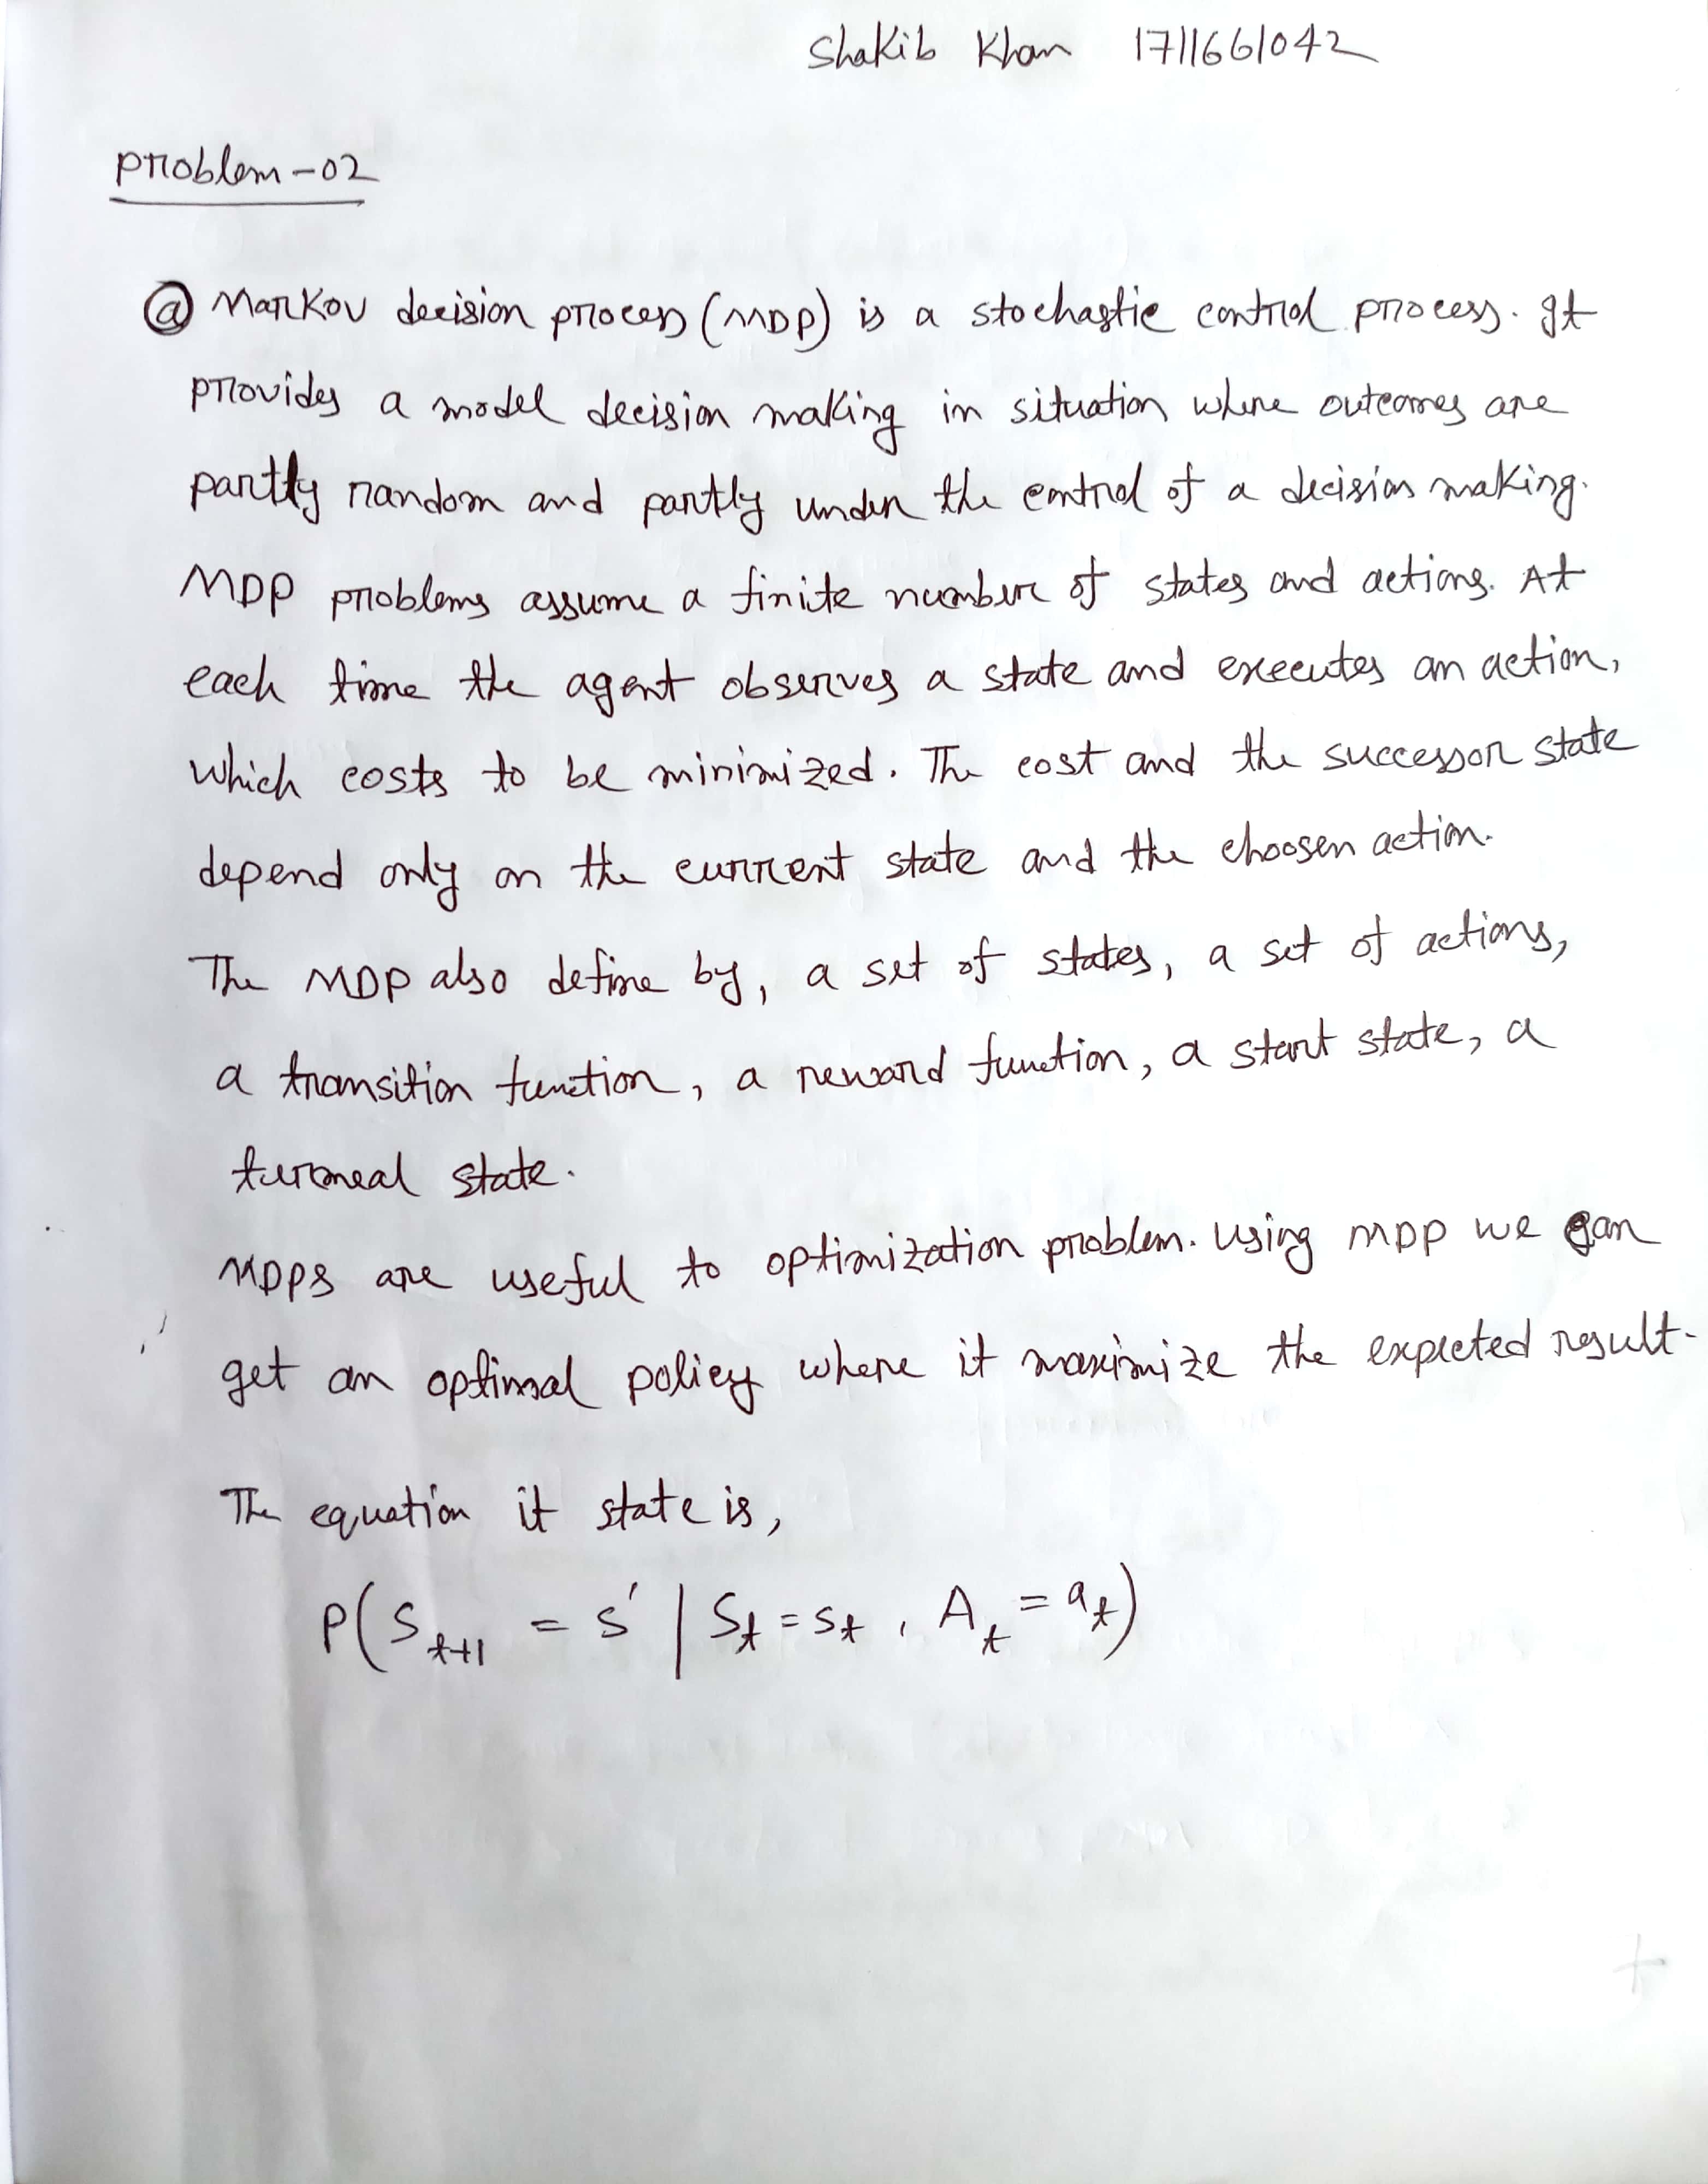 Shakib Khan 1711661042
Problem-02
ⓐ Markov decision process (MDP) is a stochastic control process. It
provides a model decision making in situation where outcomes are
partly random and partly under the control of a decision making.
MDP problems assume a finite number of states and actions. At
each time the agent observes a state and executes an action,
which costs to be minimized. The cost and the successor state
depend only on the current state and the choosen action.
The MDP also define by, a set of states, a set of actions,
a transition function, a reward function, a start state, a
turmeal state.
MDPs are useful to optimization problem. Using MDP we can
get an optimal policy where it maximize the expected result.
The equation it state is,
P(S_{t+1} = s' | S_t = s_t , A_t = a_t)